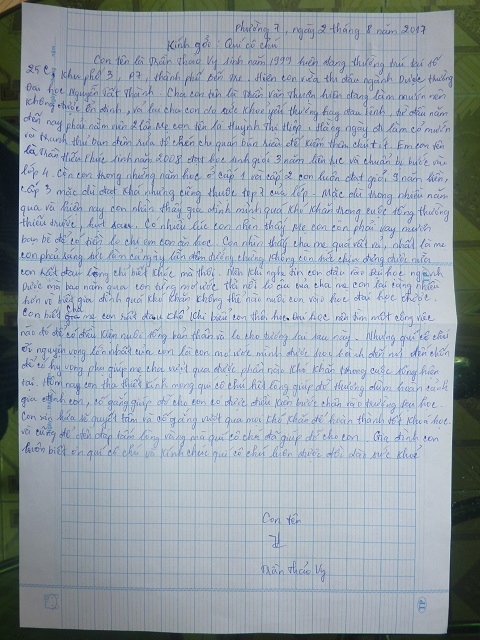 Phường 7, ngày 2 tháng 8 năm 2017
Kính gởi: Quí cô chú
Con tên là Trần Thảo Vy sinh năm 1999 hiện đang thường trú tại số
25C Khu phố 3, P7, thành phố Bến Tre. Hiện con vừa thi đậu ngành Dược trường
Đại học Nguyễn Tất Thành. Cha con tên là Trần Văn Thuyên hiện đang làm mướn nên
không được ổn định, và lại cha con do sức khoẻ yếu thường hay đau bệnh, từ đầu năm
đến nay phải nằm viện 2 lần. Mẹ con tên là Huỳnh Thị Hiệp. Hằng ngày đi làm cỏ mướn
và tranh thủ ban đêm rửa tô chén cho quán bún riêu để kiếm thêm chút ít. Em con tên
là Trần Thiên Phúc sinh năm 2008 đạt học sinh giỏi 3 năm liên tục và chuẩn bị bước vào
lớp 4. Còn con trong những năm học ở cấp 1 và cấp 2 con luôn đạt giỏi 9 năm liền,
cấp 3 mặc dù đạt khá nhưng cũng thuộc top 7 của lớp. Mặc dù trong nhiều năm
qua và hiện nay con nhận thấy gia đình mình quá khó khăn trong cuộc sống thường
thiếu trước, hụt sau. Có nhiều lúc con nhìn thấy mẹ con còn phải vay mượn
bạn bè để có tiền lo chị em con ăn học. Con nhìn thấy cha mẹ quá vất vả, nhất là mẹ
con phải lặn lội làm cả ngày lẫn đêm dường chừng không còn sức chịu đựng được nữa
con rất đau lòng chỉ biết khóc mà thôi. Nên khi nghe tin con đậu vào đại học ngành
Dược mà bao năm qua con từng mơ ước thì nỗi lo của cha mẹ con lại càng nhiều
hơn vì biết gia đình quá khó khăn không thể nào nuôi con vào học đại học được.
Con biết cha mẹ con rất đau khổ khi biểu con thôi học Đại học nên tìm một công việc
nào đó để có điều kiện nuôi sống bản thân và lo cho tương lai sau này. Nhưng quí cô chú
ơi nguyện vọng lớn nhất của con là con mơ ước mình được học hành đến nơi đến chốn
để có hy vọng phụ giúp mẹ cha vượt qua được phần nào khó khăn trong cuộc sống hiện
tại. Hôm nay con tha thiết kính mong quí cô chú hết lòng giúp đỡ thương dùm hoàn cảnh
gia đình con, cố gắng giúp đỡ cho con có được điều kiện bước chân vào trường đại học.
Con xin hứa sẽ quyết tâm và cố gắng vượt qua mọi khó khăn để hoàn thành tốt khoá học
và cũng để đền đáp tấm lòng vàng mà quí cô chú đã giúp đỡ cho con. Gia đình con
luôn biết ơn quí cô chú và kính chúc quí cô chú luôn được dồi dào sức khoẻ
Con tên
Trần Thảo Vy